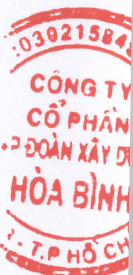 :03021584
CÔNG TY
CỔ PHẦN
ĐOÀN XÂY
HÒA BÌNH
T.P HỒ CH